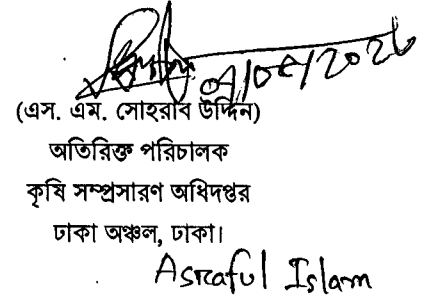 ০৭/০৫/২০২৬
(এস. এম. সোহরাব উদ্দিন)
অতিরিক্ত পরিচালক
কৃষি সম্প্রসারণ অধিদপ্তর
ঢাকা অঞ্চল, ঢাকা।
Asraful Islam